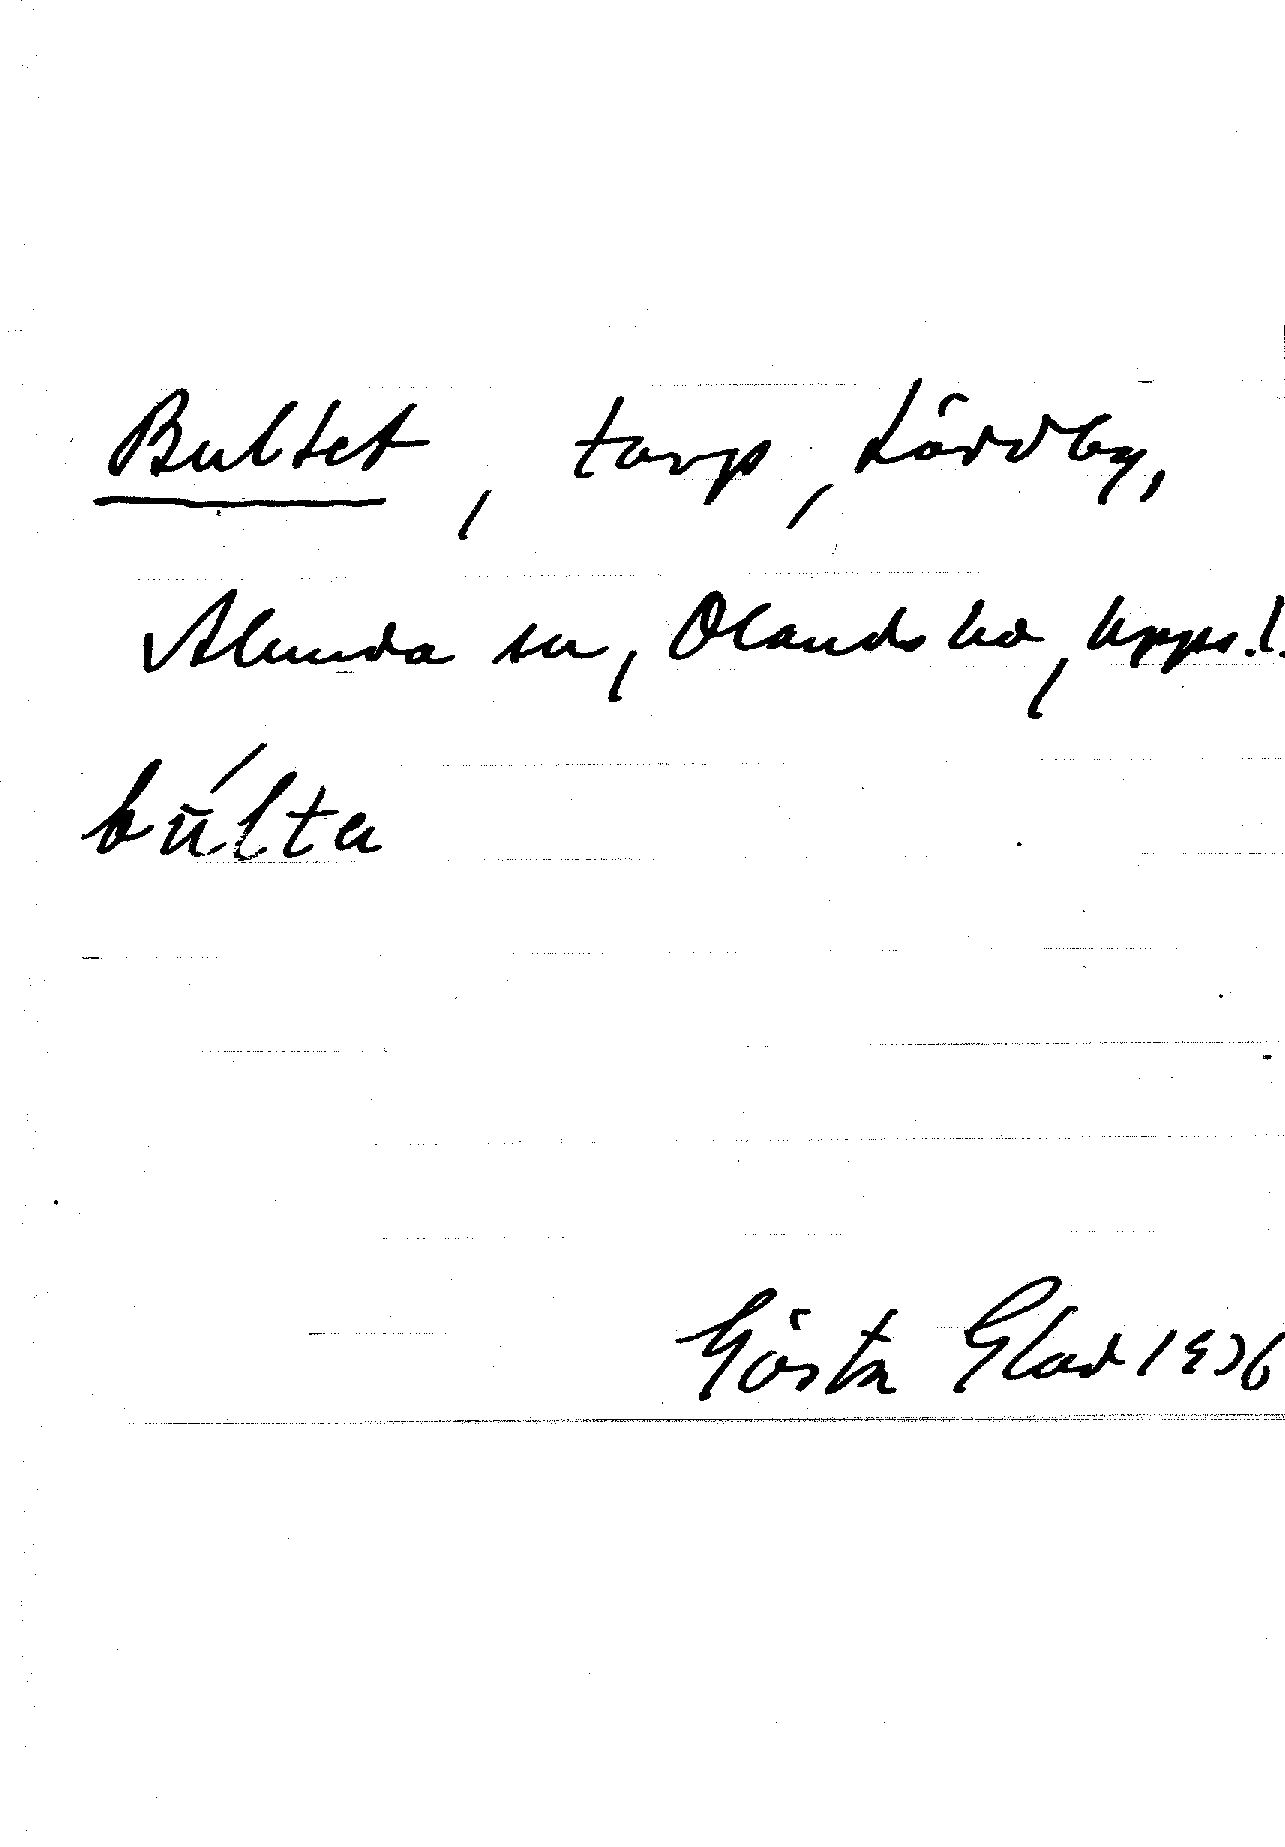 Bultet, torp, Lördby,
Alunda sn, Olands hd, Upps.l.
búlta
Gösta Glad 1936